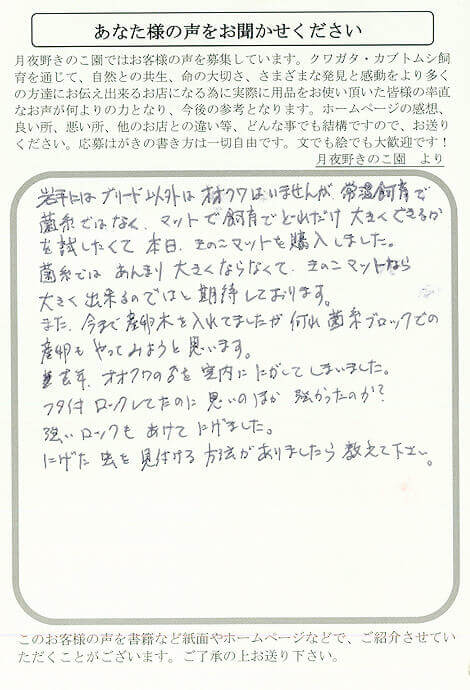 あなた様の声をお聞かせください
月夜野きのこ園ではお客様の声を募集しています。クワガタ・カブトムシ飼
育を通じて、自然との共生、命の大切さ、さまざまな発見と感動をより多く
の方達にお伝え出来るお店になる為に実際に用品をお使い頂いた皆様の率直
なお声が何よりの力となり、今後の参考となります。ホームページの感想、
良い所、悪い所、他のお店との違い等、どんな事でも結構ですので、お送り
ください。応募はがきの書き方は一切自由です。文でも絵でも大歓迎です！
月夜野きのこ園　より
岩手にはブリード以外はオオクワはいませんが、常温飼育で
菌糸ではなく、マットで飼育でどれだけ大きくできるか
を試したくて本日、きのこマットを購入しました。
菌糸では あんまり大きくならなくて、きのこマットなら
大きく出来るのではと期待しております。
また、今まで産卵木を入れてましたが何れ菌糸ブロックでの
産卵もやってみようと思います。
去年、オオクワの♂を室内ににがしてしまいました。
フタ付 ロックしてたのに 思いのほか 強かったのか？
強いロックも あけて にげました。
にげた 虫を見付ける 方法がありましたら 教えて下さい。
このお客様の声を書籍など紙面やホームページなどで、ご紹介させてい
ただくことがございます。ご了承の上お送り下さい。